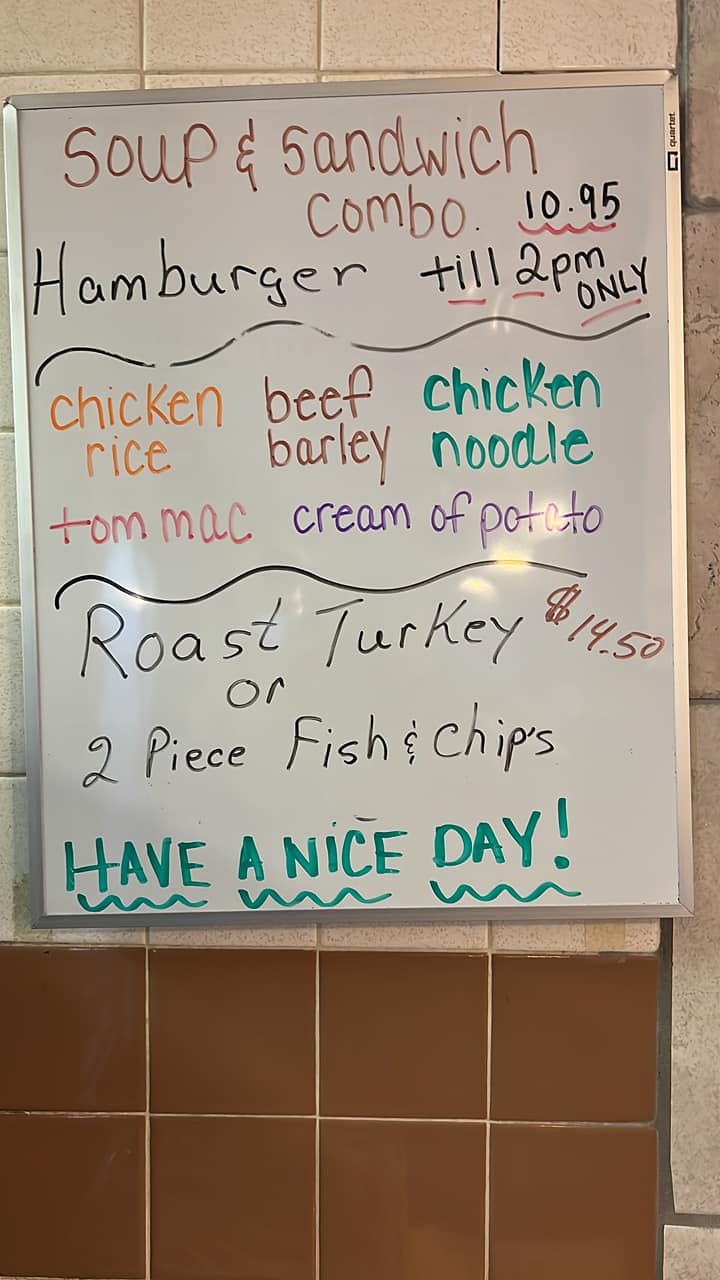 Soup & Sandwich
Combo. 10.95
Hamburger till 2pm
ONLY
chicken beef chicken
rice barley noodle
tom mac cream of potato
Roast Turkey $14.50
or
2 Piece Fish & Chip's
HAVE A NICE DAY!
quartet